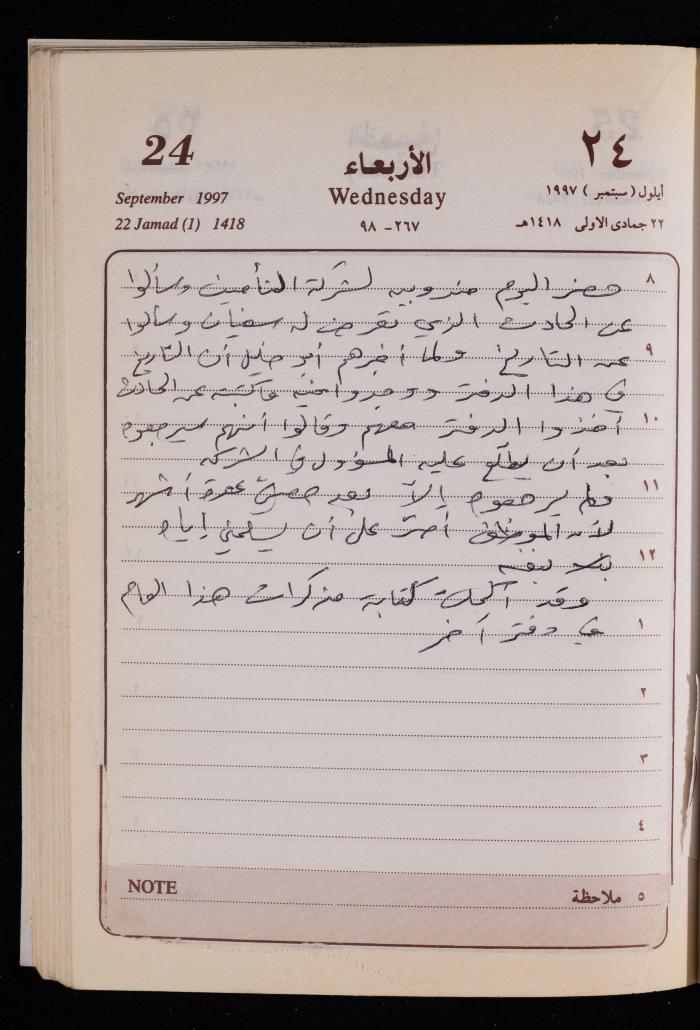 24
الأربعاء
٢٤
September 1997
Wednesday
أيلول (سبتمبر) ١٩٩٧
22 Jamad (1) 1418
٢٦٧ - ٩٨
٢٢ جمادى الاولى ١٤١٨هـ
٨
حضر اليوم مندوبيه لشركة التأمين وسألوا
عن الحادث الذي تعرض له سفيان وسألوا
٩
عن التاريخ ولما أخبرهم أبو خليل أن التاريخ
في هذا الدفتر ووجدوا فيه ما كتبته عن الحادث
١٠
أخذوا الدفتر معهم وقالوا أنهم سيرجعوه
بعد أن يطلع عليه المسؤول في الشركة
١١
فلم يرجعوه إلا بعد أشهر
لأن الموظف أصرّ على أن يسلمني إياه
١٢
بنفسه
وقد أكملت كتابة مذكرات هذا العام
١
في دفتر آخر
٢
٣
٤
NOTE
٥ ملاحظة